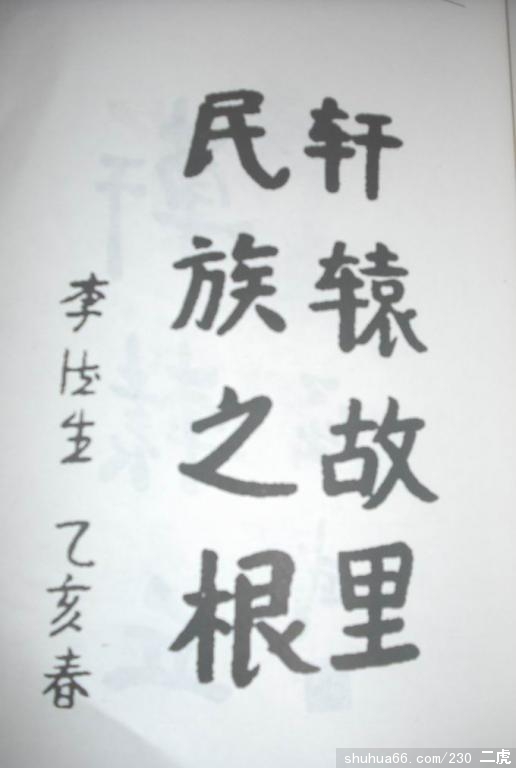 轩辕故里
民族之根
李德生 乙亥春
shuhua66.com/230 二虎